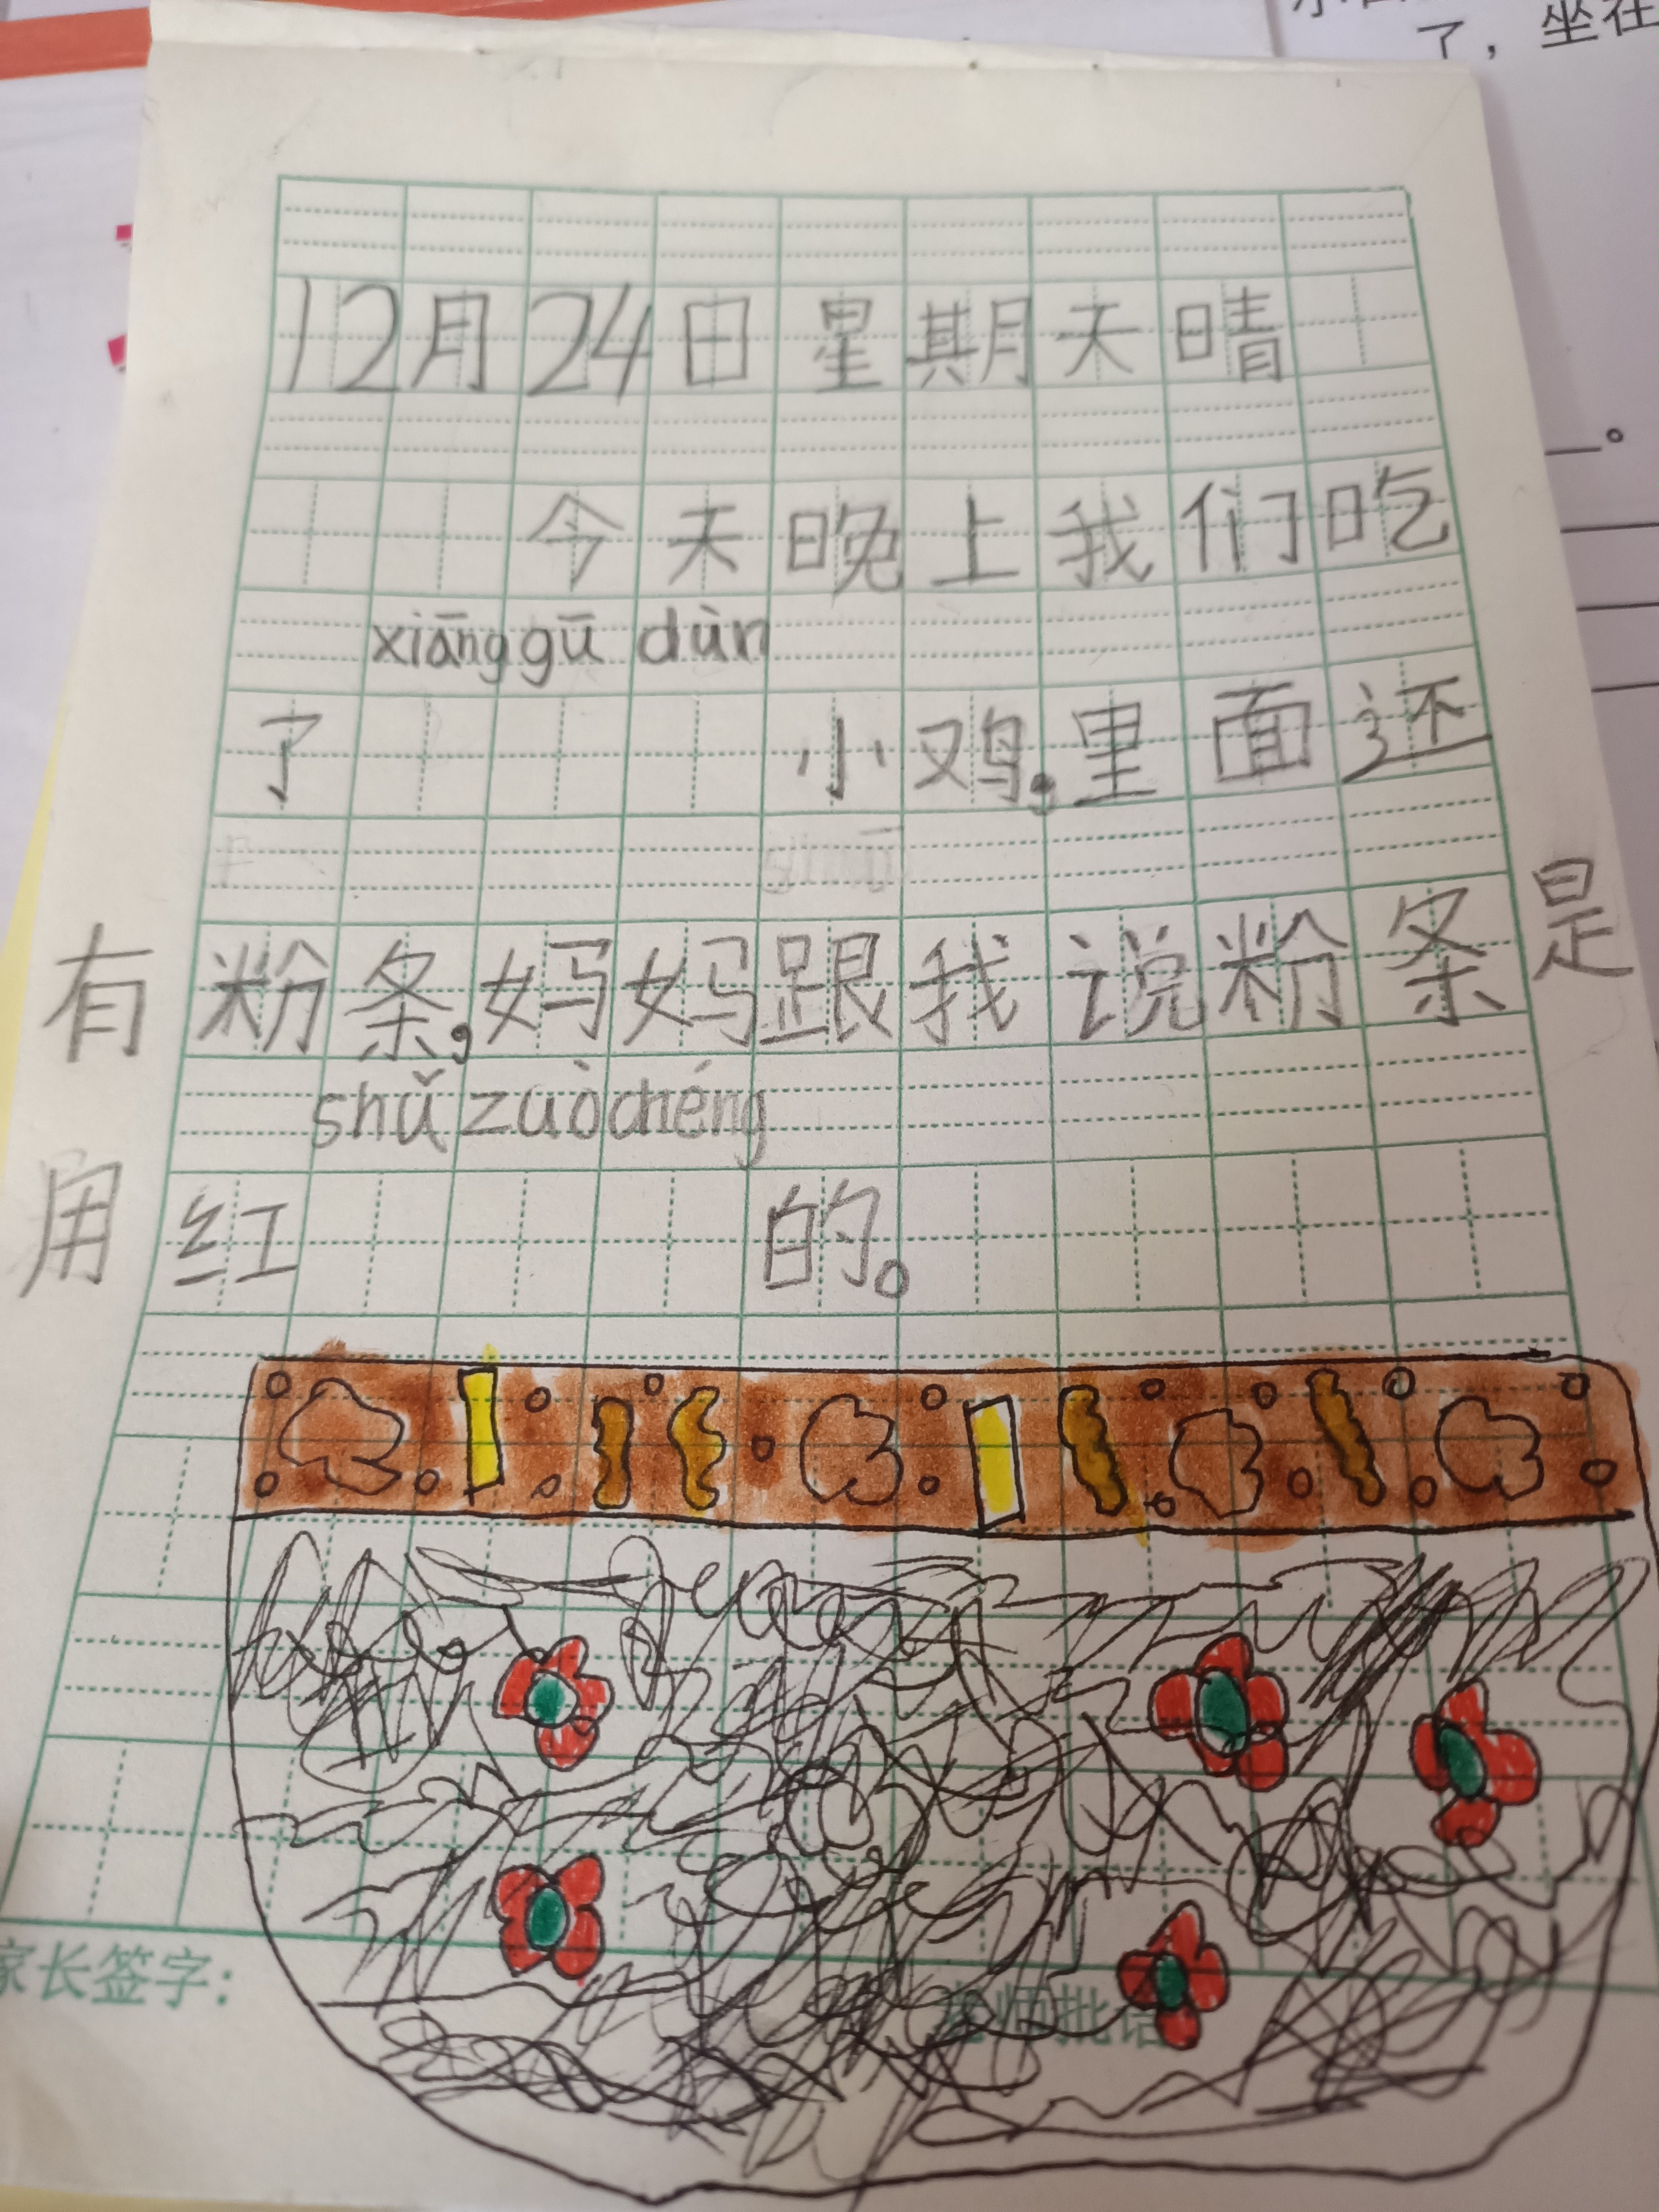 了，坐在
12月24日星期天晴
今天晚上我们吃
xiānggū dùn
了 小鸡,里面还
有粉条,妈妈跟我说粉条是
shǔ zuòchéng
用红 的。
家长签字：
老师批语